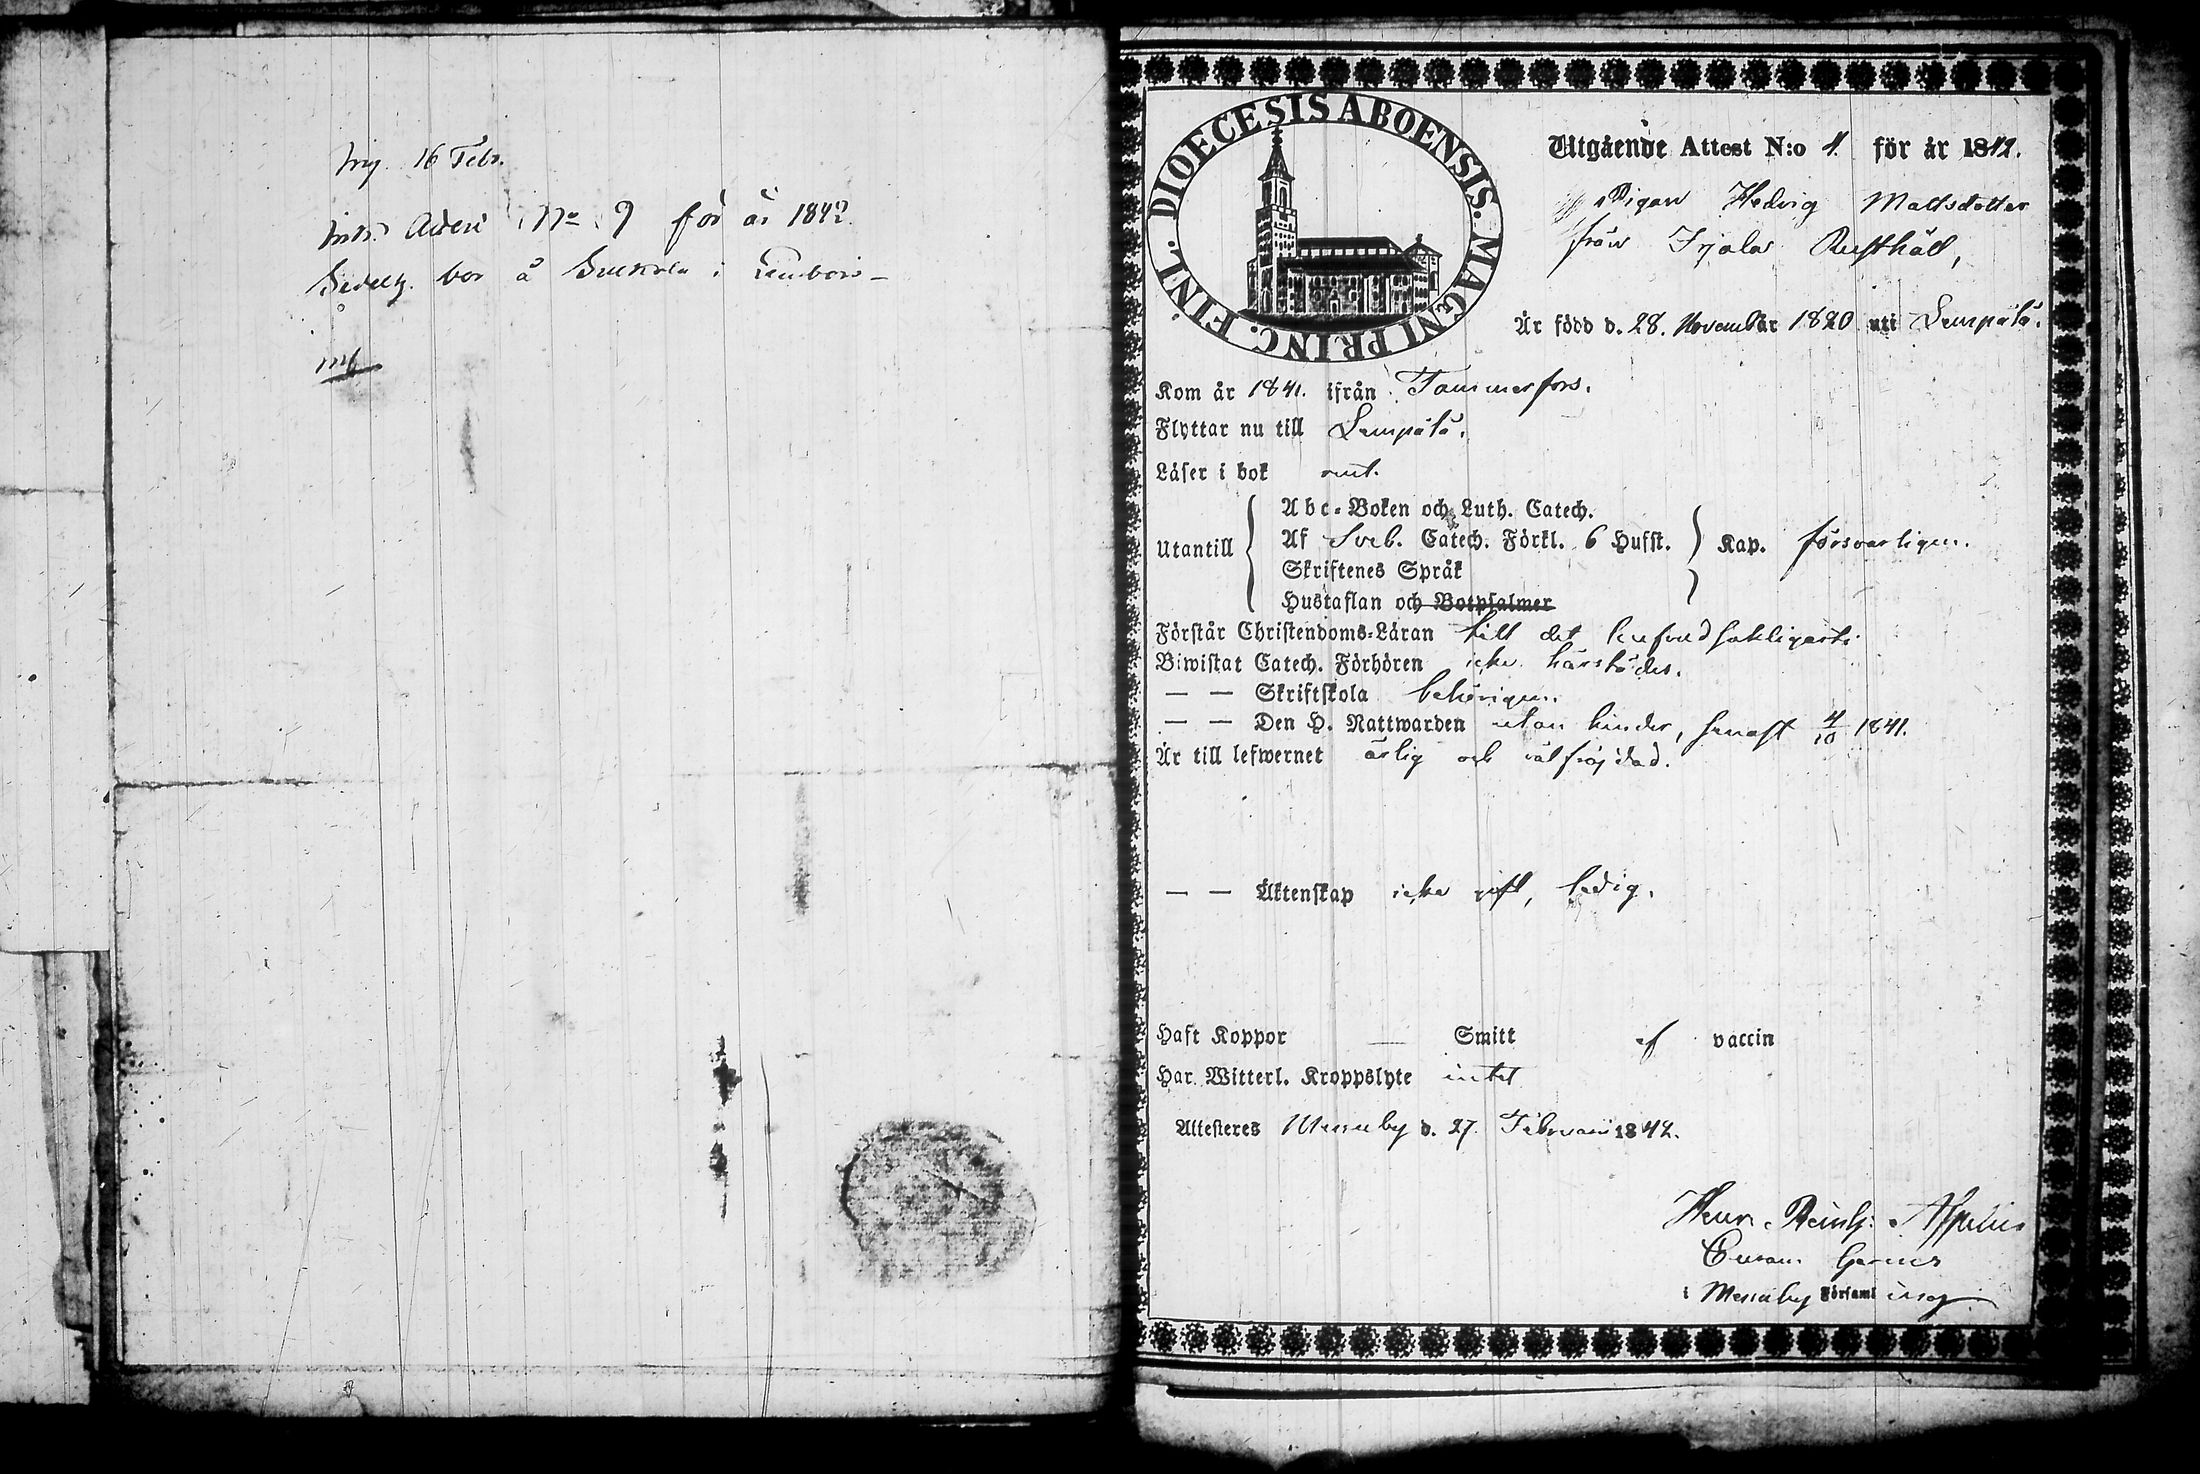 16 Febr.
N:o 9 för år 1842
bor å i
DIOECESIS ABOENSIS. MAGNI PRINC. FINL.
Utgående Attest N:o 4. för år 1842.
Pigan Hedvig Mattsdotter
från Irjala Rusthåll,
Är född d. 28. November 1820 uti Lempälä.
Kom år 1841. ifrån Tammerfors.
Flyttar nu till Lempälä.
Läser i bok rent.
Utantill
Abc-Boken och Luth. Catech.
Af Sveb. Catech. Förkl. 6 Hufst.
Skriftenes Språk
Hustaflan och Botpsalmer
Kap. försvarligen.
Förstår Christendoms-Läran till det hufvudsakligaste.
Biwistat Catech. Förhören icke härstädes.
— — Skriftskola behörigen.
— — Den H. Nattwarden utan hinder, senast 4/10 1841.
Är till lefwernet ärlig och välfräjdad.
— — Äktenskap icke gift, ledig.
Haft Koppor — Smitt af vaccin
Har Witterl. Kroppslyte intet
Attesteres Messuby d. 27. Februarii 1842.
Henr. Reinh. Appelius
i Messuby Församl ing